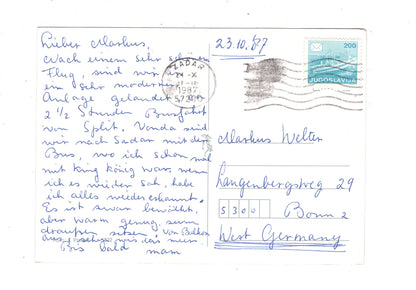 Lieber Markus,
Nach einem sehr
Flug, sind wir
in sehr modernen
Anlage gelandet
2 1/2 Stunden Busfahrt
von Split. sind
wir nach Sadar mit dem
Bus, wo ich schon mal
mit king kong war, wenn
ich es wieder sah, habe
ich alles wiedererkannt.
Es ist zwar bewölkt,
aber warm genug zum
draußen sitzen. Von Balkon
aus sehen wir das Meer
Bis bald
mam
23.10.87
ZADAR
24-X
1987
57300
200
JUGOSLAVIJA
Markus Welter
Langenbergsweg 29
5300 Bonn 2
West Germany